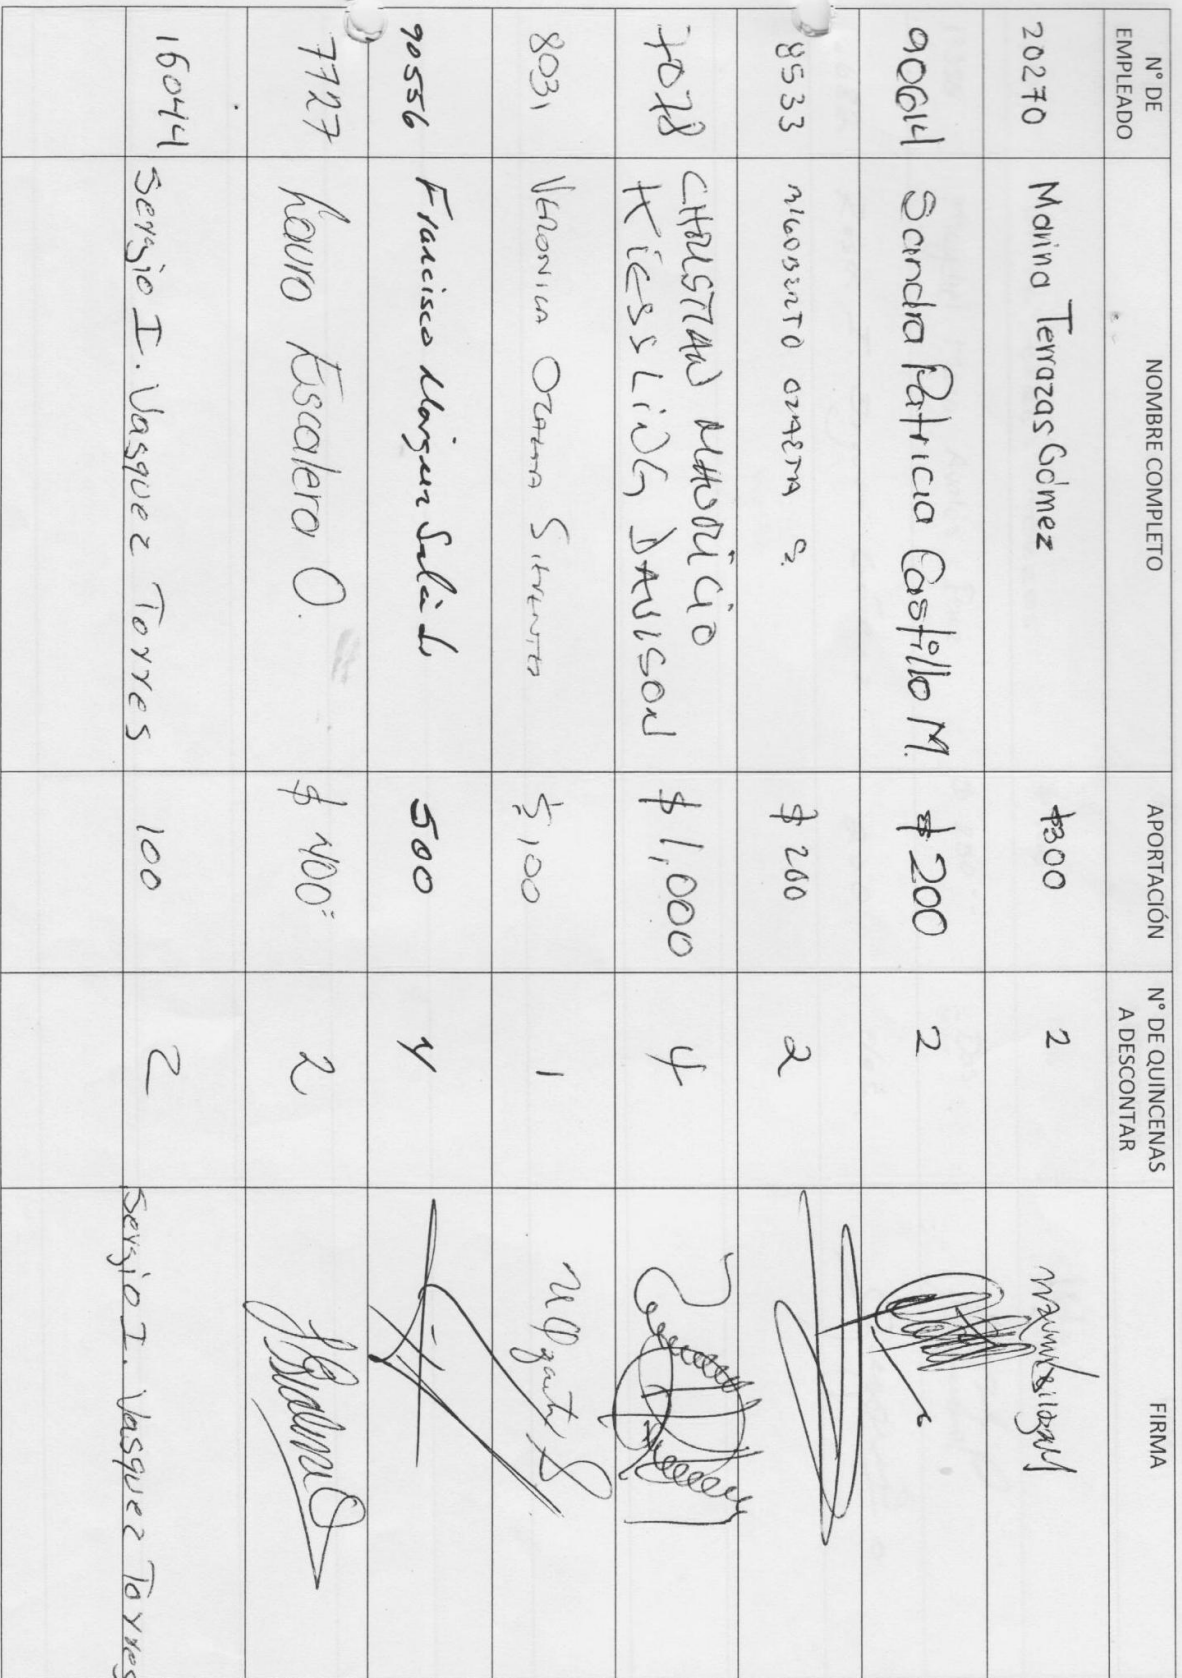 N° DE EMPLEADO NOMBRE COMPLETO APORTACIÓN N° DE QUINCENAS A DESCONTAR FIRMA
20270 Marina Terrazas Gómez $300 2
90614 Sandra Patricia Castillo M. $200 2
8533 $200 2
7078 CHRISTIAN MAURICIO KIESSLING DAVISON $1,000 4
8031 VERONICA 1
90556 Francisco 500 4
7727 Lauro Escalera O. $400= 2
16044 Sergio I. Vasquez Torres 100 2 Sergio I. Vasquez Torres